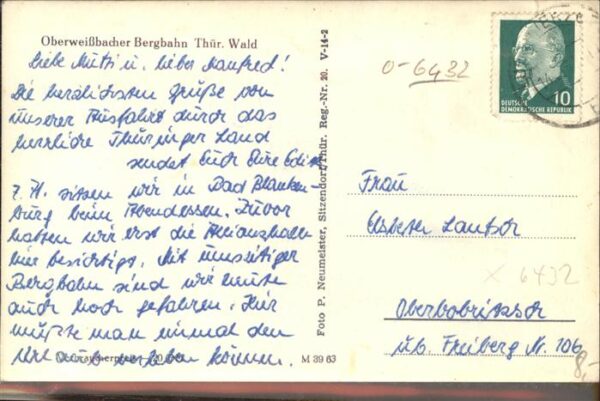 Oberweißbacher Bergbahn Thür. Wald
Liebe Mutti u. lieber Manfred!
Die herzlichsten Grüße von
unserer Ausfahrt durch das
herrliche Thüringer Land
sendet Euch Eure Edith
z. Zt. sitzen wir in Bad Blanken-
burg beim Abendessen. Zuvor
hatten wir erst die Allianzhalle
hier besichtigt. Mit umseitiger
Bergbahn sind wir heute
auch hoch gefahren. Hier
müßte man einmal den
Urlaub verleben können.
Verbraucherpreis
M 39 63
Foto P. Neumeister, Sitzendorf/Thür. Reg.-Nr. 20. V-14-2
0-6432
DEUTSCHE
DEMOKRATISCHE REPUBLIK
10
Frau
Elsbeter
x 6432
Oberbobritzsch
üb. Freiberg Nr. 106
8,-